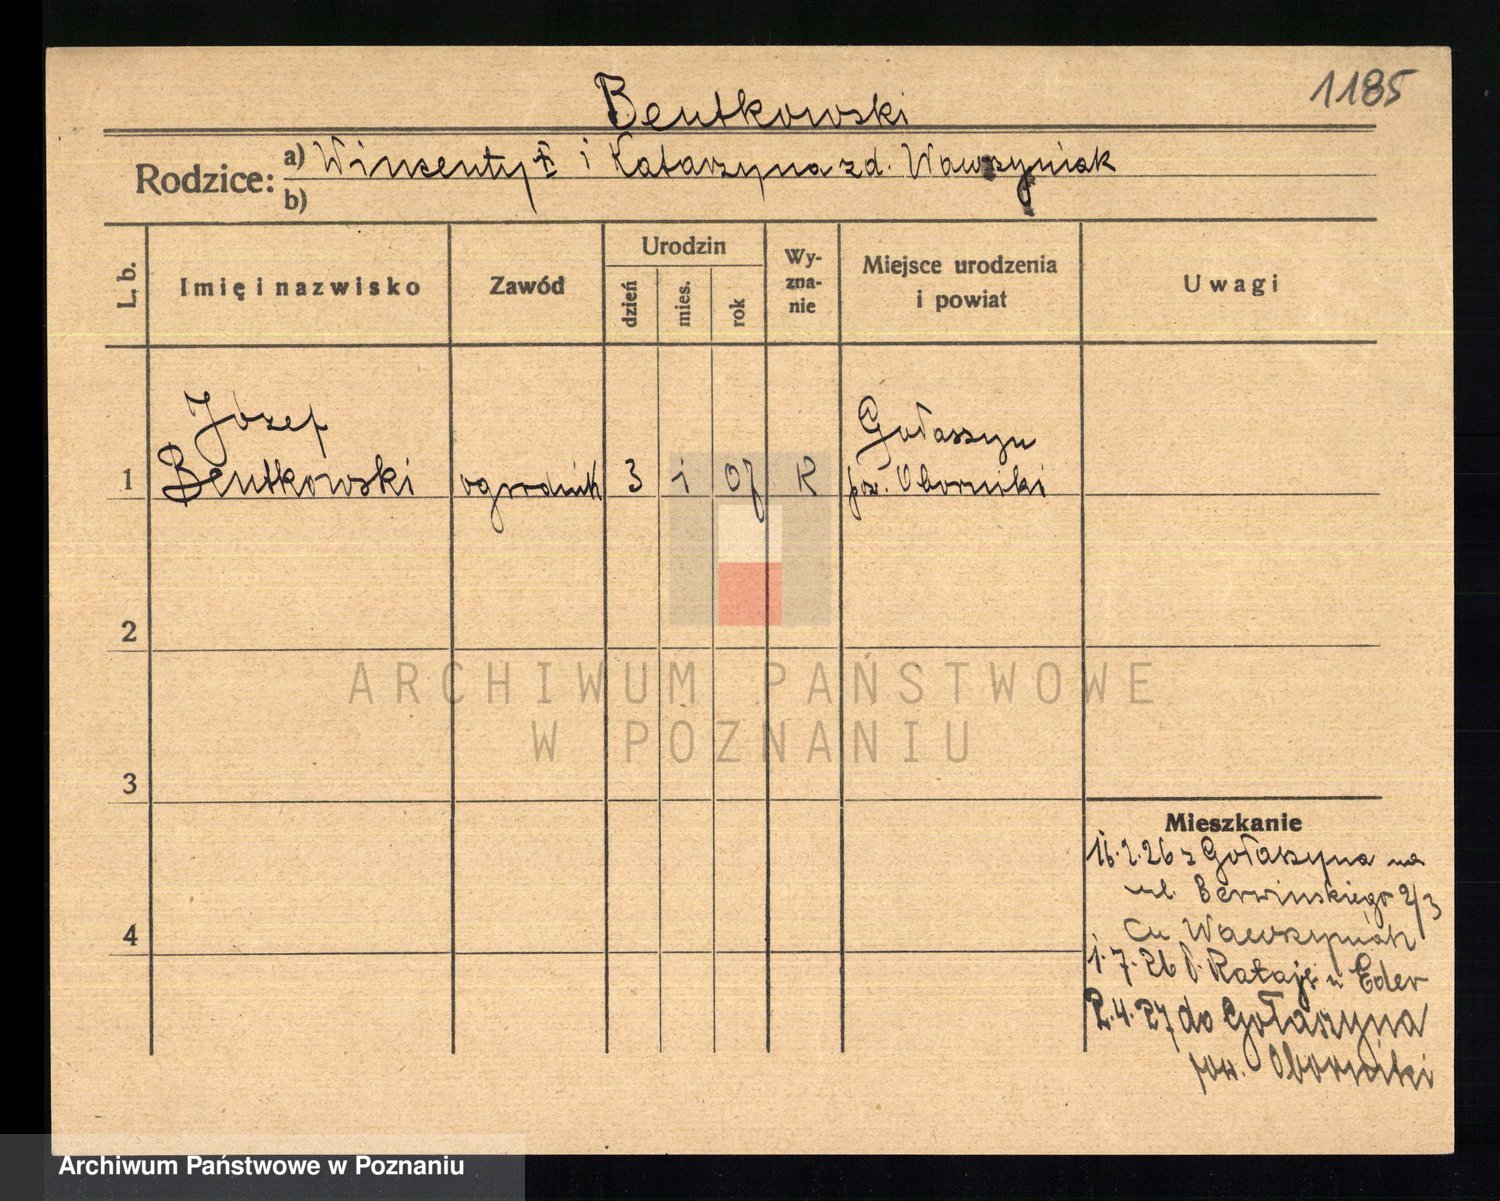 1185
Bentkowski
Rodzice: a) Wincenty † i Katarzyna z d. Wawrzyniak
b)
L. b.
Imię i nazwisko
Zawód
Urodzin
dzień
mies.
rok
Wy-
zna-
nie
Miejsce urodzenia
i powiat
Uwagi
1
Józef
Bentkowski
ogrodnik
3
i
07
R
Gołaszyn
pow. Oborniki
2
3
4
Mieszkanie
2.26 z Gołaszyna na
ul. Berwińskiego 2/3
Wawrzyniak
1.7.26 Rataje u Eder
2.4.27 do Gołaszyna
pow. Oborniki
ARCHIWUM PAŃSTWOWE
W POZNANIU
Archiwum Państwowe w Poznaniu